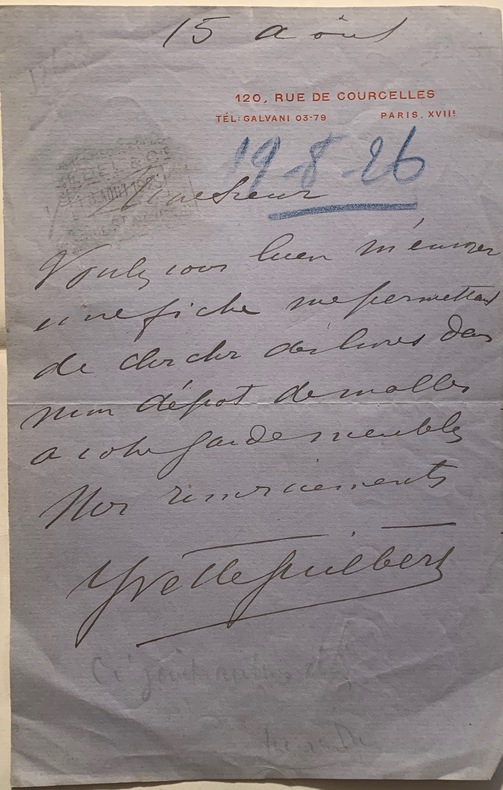 15 Août
120, RUE DE COURCELLES
TÉL: GALVANI 03-79 PARIS. XVIIE
19-8-26
Monsieur
Voulez vous bien m'envoyer
une fiche me permettant
de chercher des livres dans
mon dépot de malles
a votre garde meubles
Mes remerciements
Yvette Guilbert
Ci joint